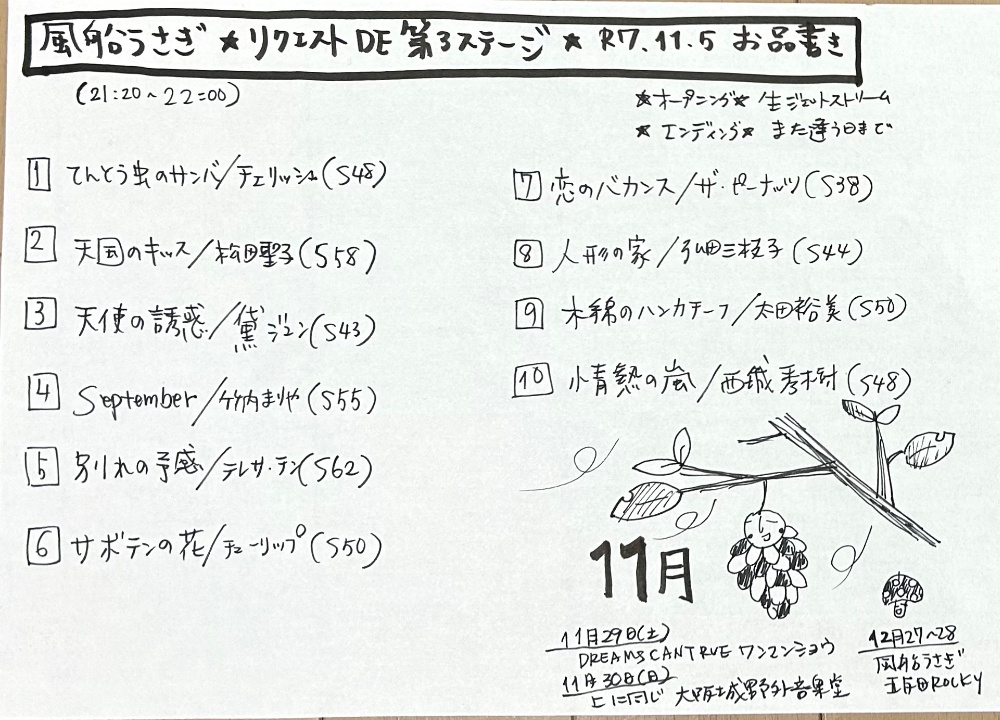 風船うさぎ★リクエストDE第3ステージ★R7.11.5 お品書き
(21:20~22:00)
★オープニング★ 生ジェットストリーム
★エンディング★ また違う日まで
1 てんとう虫のサンバ/チェリッシュ(S48)
2 天国のキッス/松田聖子(S58)
3 天使の誘惑/黛ジュン(S43)
4 September/竹内まりや(S55)
5 別れの予感/テレサ・テン(S62)
6 サボテンの花/チューリップ(S50)
7 恋のバカンス/ザ・ピーナッツ(S38)
8 人形の家/弘田三枝子(S44)
9 木綿のハンカチーフ/太田裕美(S50)
10 情熱の嵐/西城秀樹(S48)
11月
11月29日(土)
DREAMS CAN TRUE ワンマンショウ
11月30日(日)
上に同じ 大阪城野外音楽堂
12月27~28
風船うさぎ
五反田ROCKY